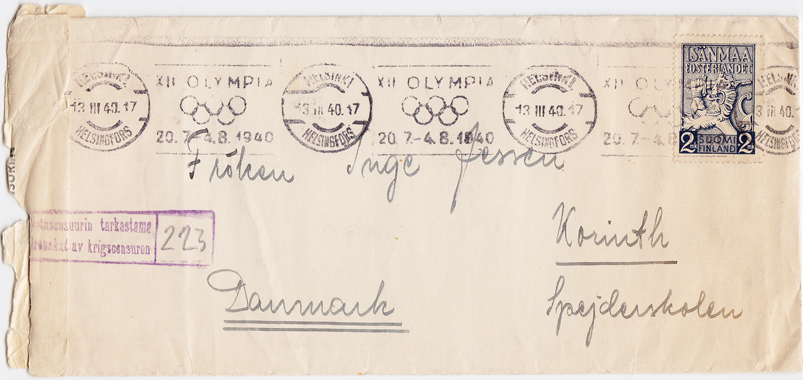 HELSINKI
13 III 40.17
HELSINGFORS
XII OLYMPIA
20.7.-4.8.1940
HELSINKI
13 III 40.17
HELSINGFORS
XII OLYMPIA
20.7.-4.8.1940
HELSINKI
13 III 40.17
HELSINGFORS
XII OLYMPIA
20.7.-4.8
HELSINKI
III 40.17
HELSINGFORS
ISÄNMAA
FOSTERLANDET
2 SUOMI 2
FINLAND
Fröken Inge Jessen
tarkastama
av krigscensuren
223
Korinth
Danmark
Spejderskolen